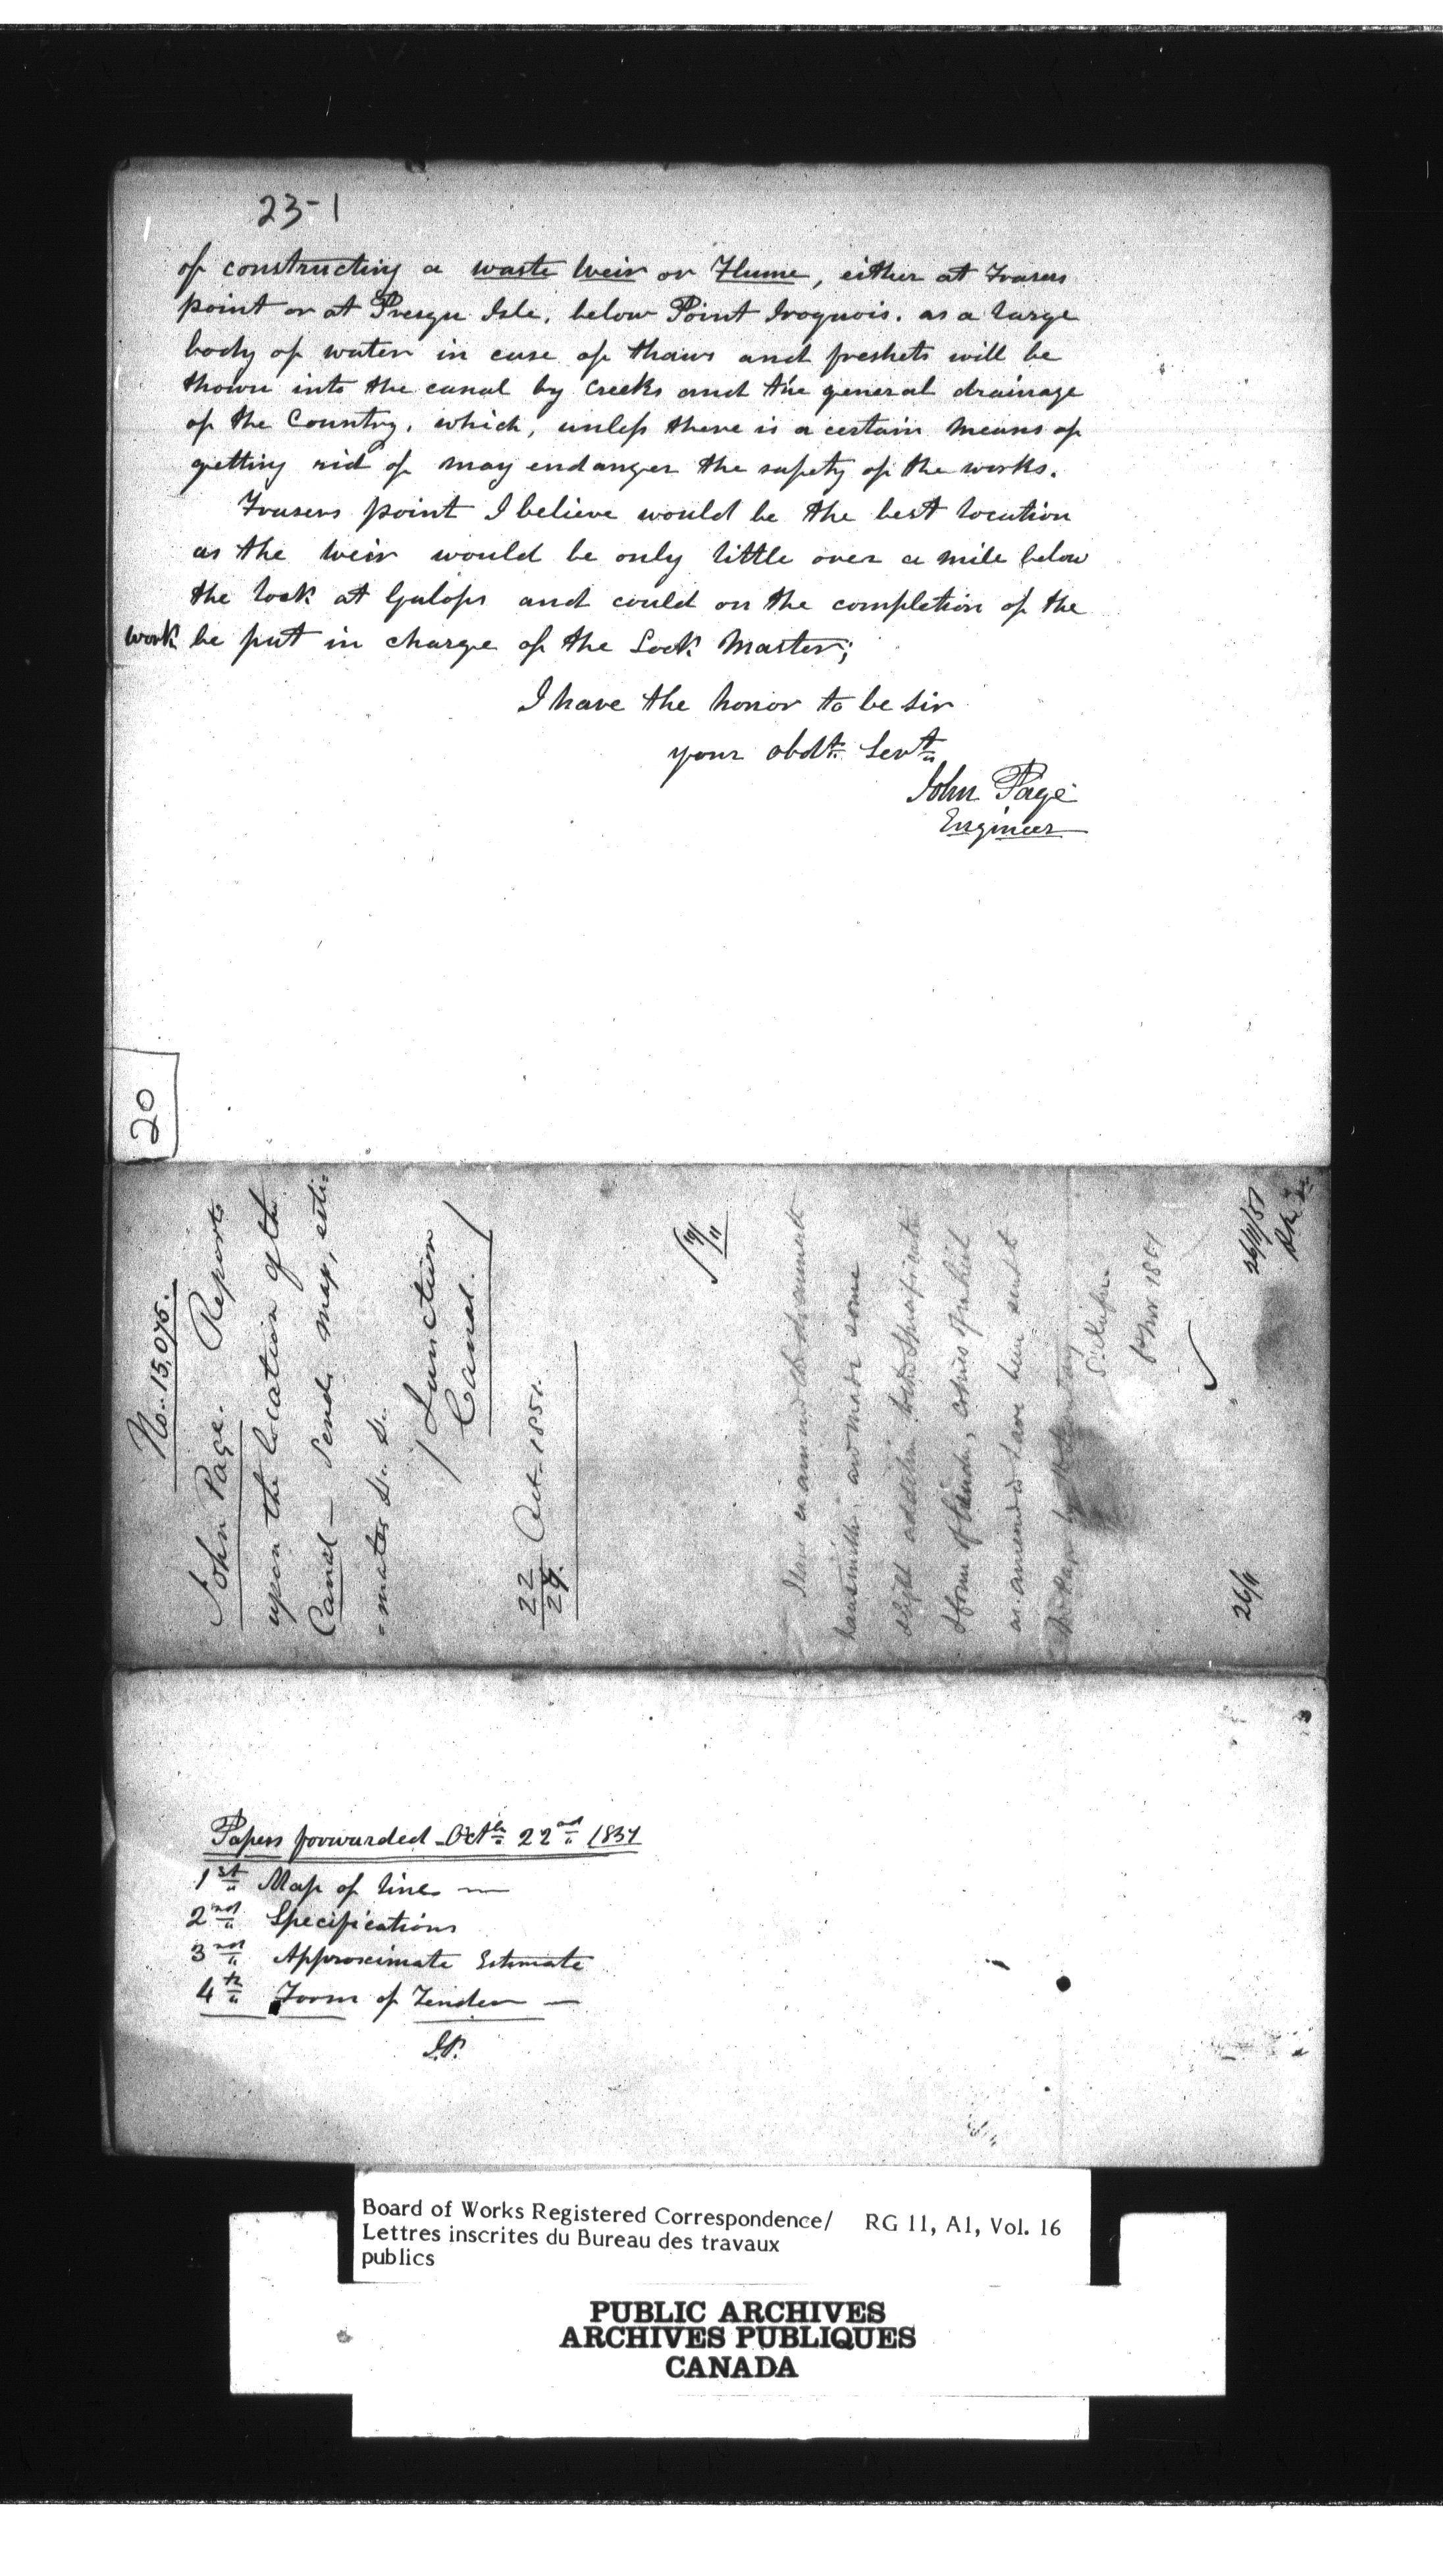 23-1
of constructing a waste weir or Flume, either at Frasers
point or at Presqu Isle, below Point Iroquois. as a large
body of water in case of thaws and freshets will be
thown into the canal by creeks and the general drainage
of the Country, which, unless there is a certain means of
getting rid of may endanger the safety of the works.
Frasers point I believe would be the best location
as the weir would be only little over a mile below
the lock at Galops and could on the completion of the
work be put in charge of the Lock Master;
I have the honor to be Sir
your obdt. Servt.
John Page
Engineer
20
No. 15,075.
John Page. Reports
upon the location of the
Canal - Sends map, esti-
-mates &c. &c.
/ Junction
Canal. /
22
29. Oct. 1851.
19/11
I have examined the documents
herewith, and made some
slight additions to the Specification
& form of tender, copies of which
as amended have been sent
Mr Page by
Nov 1851
26/11
26/11/51
Papers forwarded Octbr. 22nd 1851
1st Map of line —
2nd Specifications
3rd Approximate Estimate
4th Form of Tender —
J.P.
Board of Works Registered Correspondence/ RG 11, A1, Vol. 16
Lettres inscrites du Bureau des travaux
publics
PUBLIC ARCHIVES
ARCHIVES PUBLIQUES
CANADA